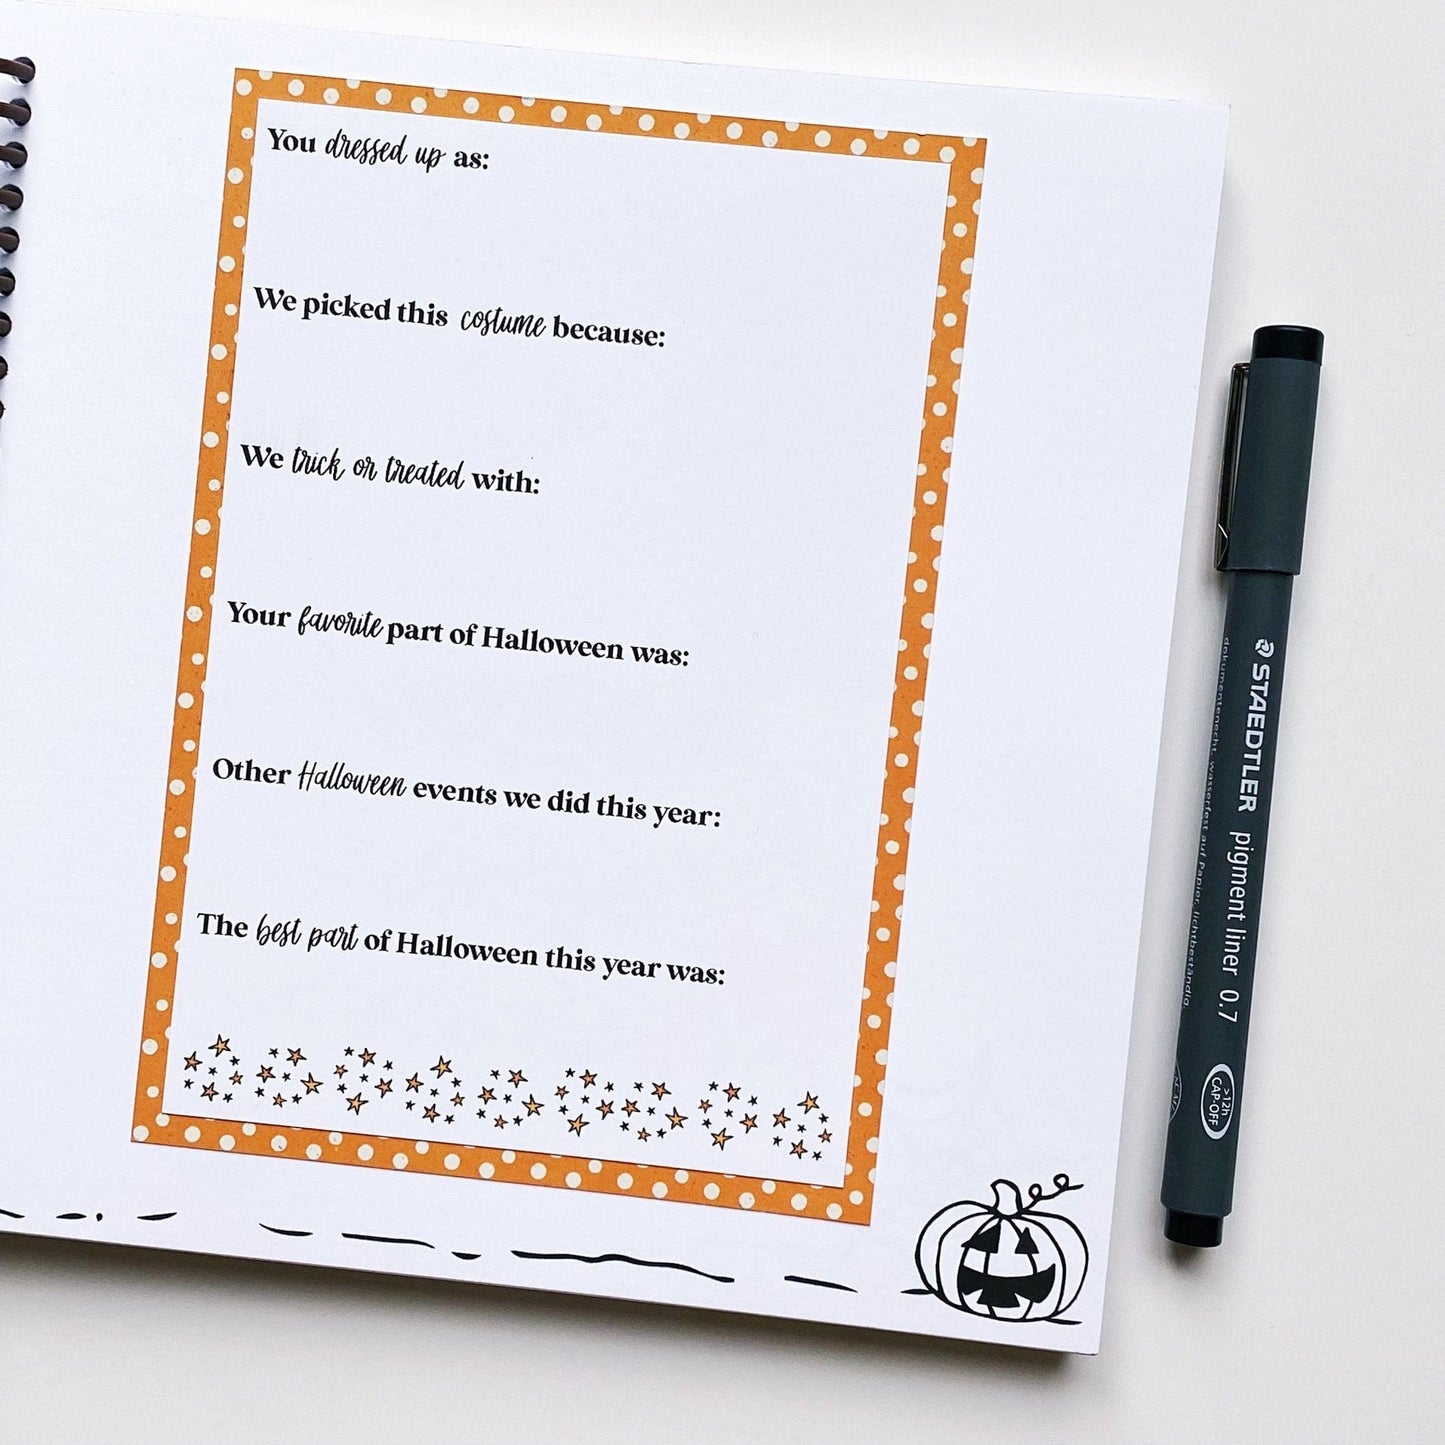 You dressed up as:
We picked this costume because:
We trick or treated with:
Your favorite part of Halloween was:
Other Halloween events we did this year:
The best part of Halloween this year was:
STAEDTLER pigment liner 0.7
dokumentenecht, wasserfest auf Papier, lichtbeständig,
>12h
CAP-OFF